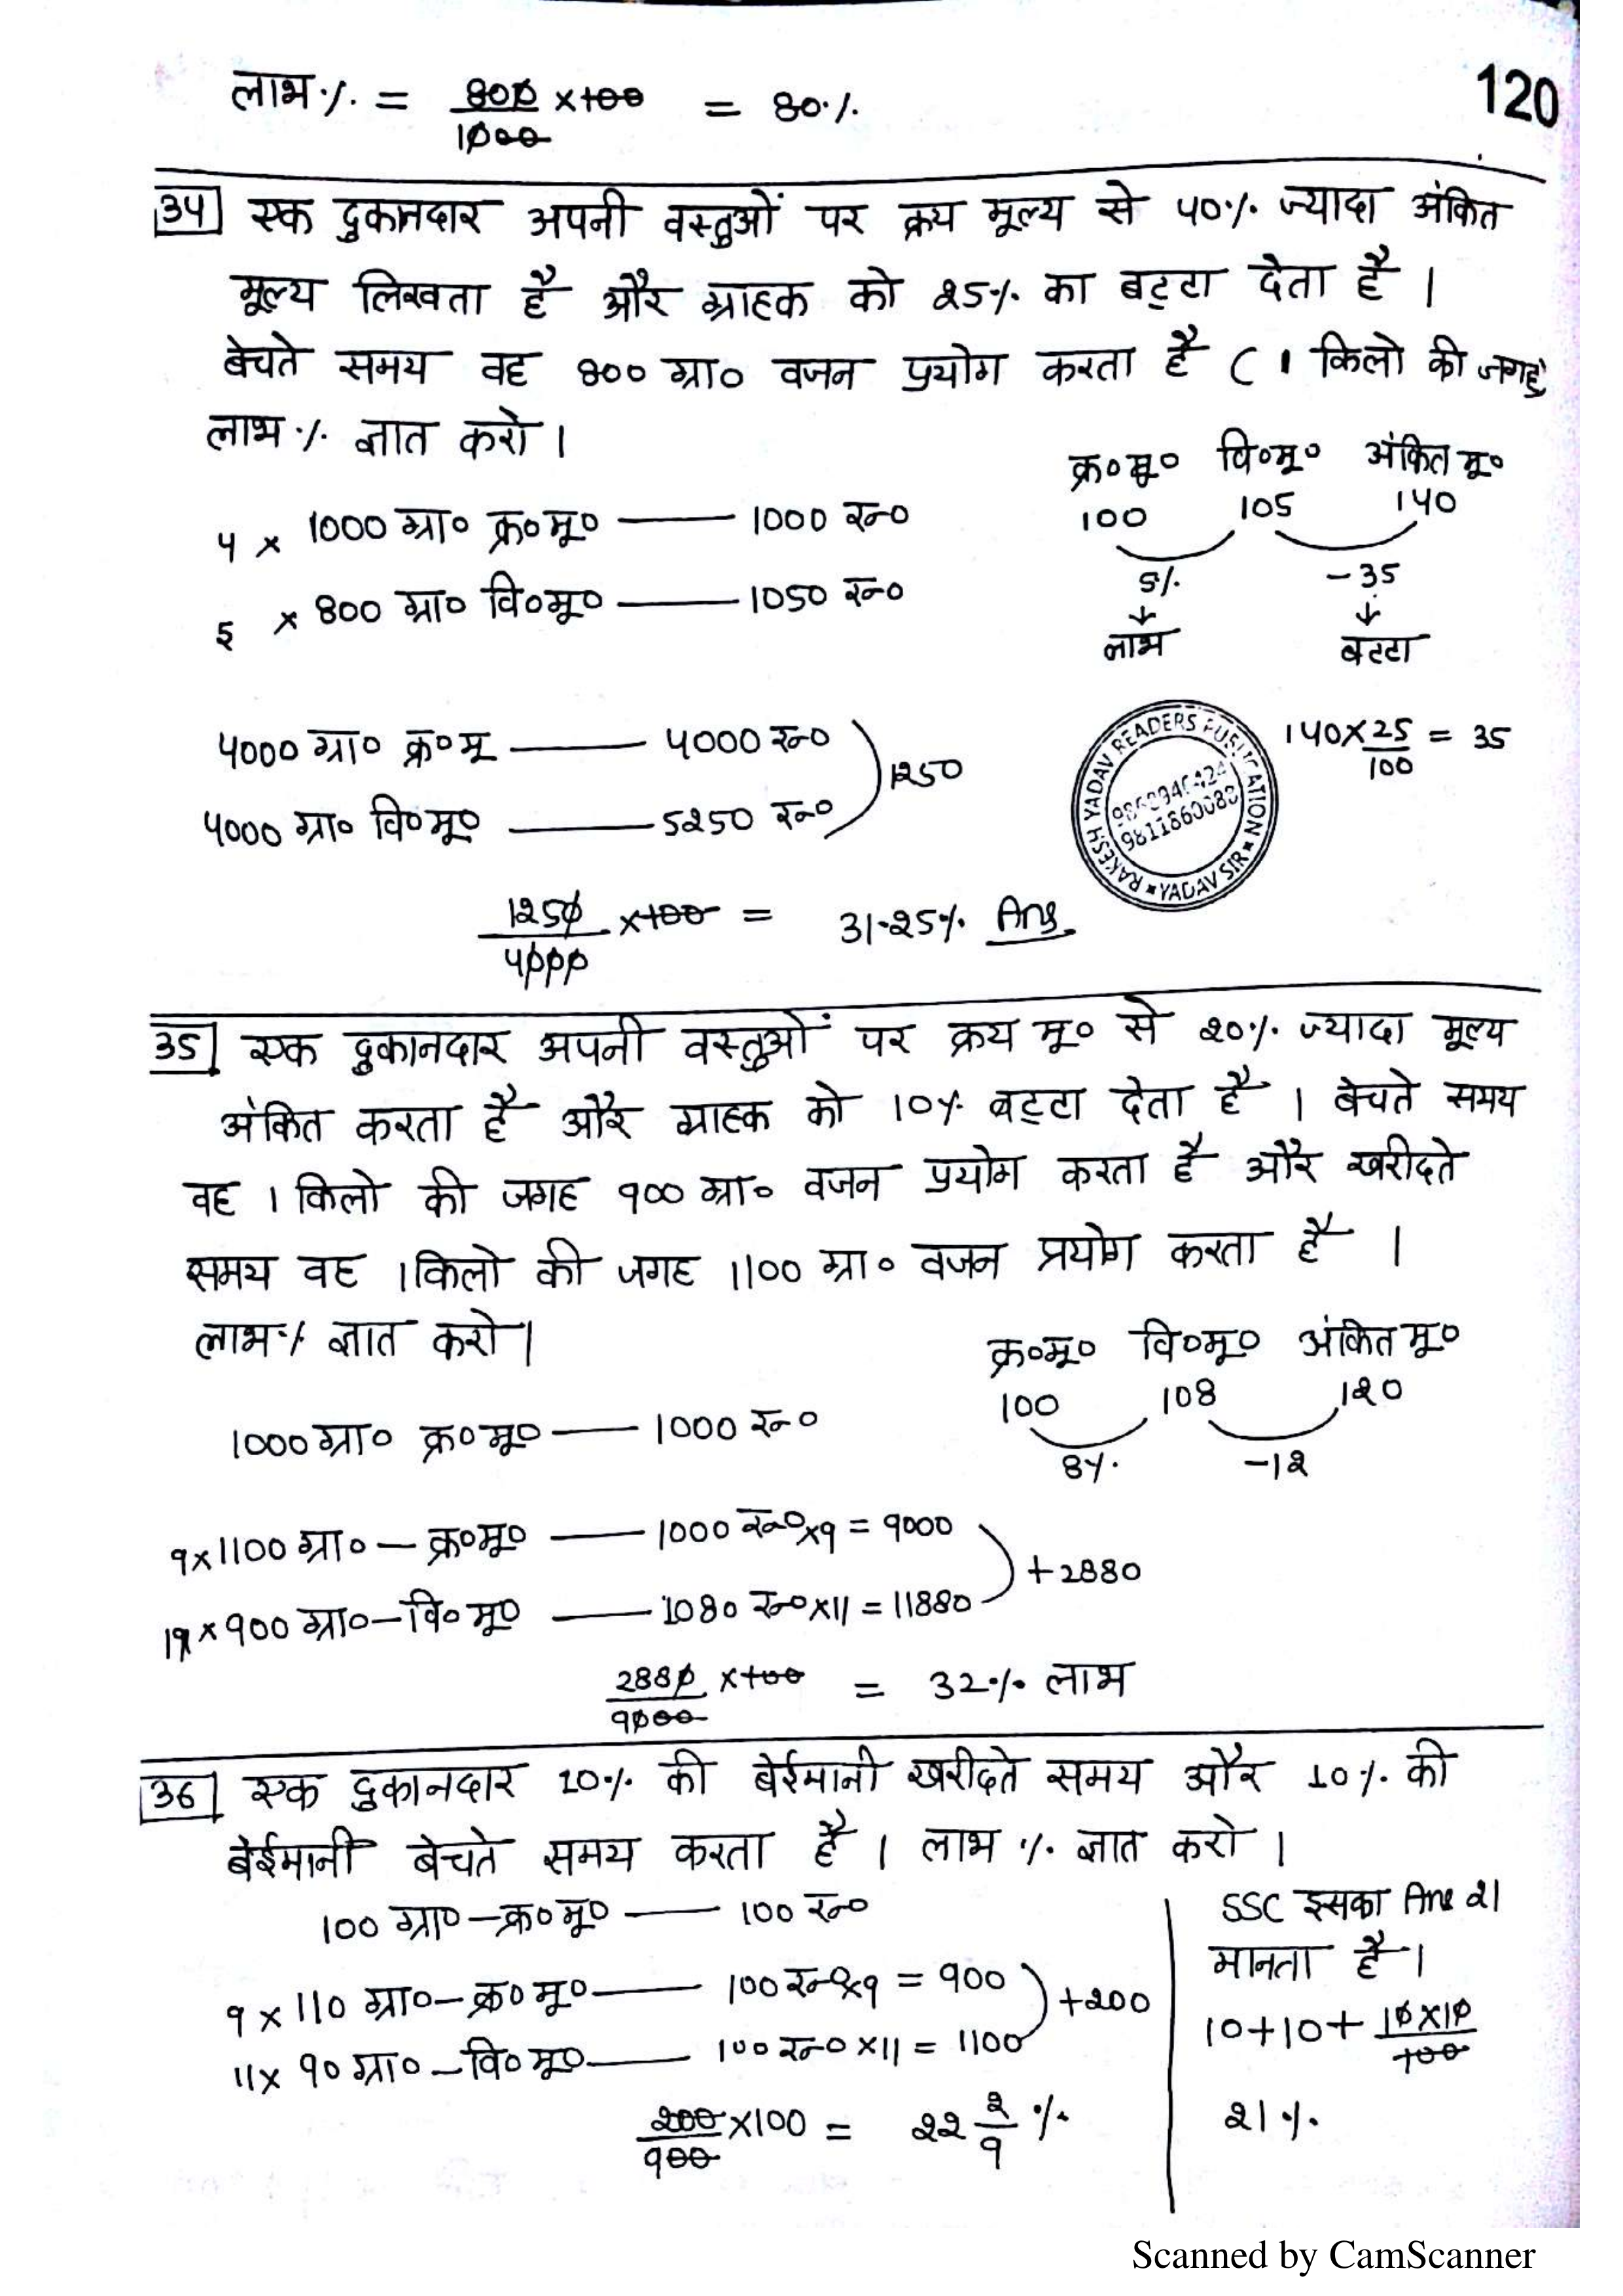 लाभ % = 800/1000 ×100 = 80%
120
34 एक दुकानदार अपनी वस्तुओं पर क्रय मूल्य से 40% ज्यादा अंकित
मूल्य लिखता है और ग्राहक को 25% का बट्टा देता है ।
बेचते समय वह 800 ग्रा० वजन प्रयोग करता है ( 1 किलो की जगह
लाभ % ज्ञात करो ।
क्र०मू० वि०मू० अंकित मू०
100 105 140
5% -35
↓ ↓
लाभ बट्टा
4 × 1000 ग्रा० क्र०मू० —— 1000 रु०
5 × 800 ग्रा० वि०मू० —— 1050 रु०
140×25/100 = 35
4000 ग्रा० क्र०मू —— 4000 रु०
4000 ग्रा० वि०मू० —— 5250 रु०
) 1250
RAKESH YADAV READERS PUBLICATION
9811860088
YADAV SIR
1250/4000 ×100 = 31.25% Ans
35 एक दुकानदार अपनी वस्तुओं पर क्रय मू० से 20% ज्यादा मूल्य
अंकित करता है और ग्राहक को 10% बट्टा देता है । बेचते समय
वह 1 किलो की जगह 900 ग्रा० वजन प्रयोग करता है और खरीदते
समय वह 1 किलो की जगह 1100 ग्रा० वजन प्रयोग करता है ।
लाभ % ज्ञात करो ।
क्र०मू० वि०मू० अंकित मू०
100 108 120
8% -12
1000 ग्रा० क्र०मू० —— 1000 रु०
9×1100 ग्रा० — क्र०मू० —— 1000 रु०×9 = 9000
11×900 ग्रा०—वि०मू० —— 1080 रु०×11 = 11880
) +2880
2880/9000 ×100 = 32% लाभ
36 एक दुकानदार 10% की बेईमानी खरीदते समय और 10% की
बेईमानी बेचते समय करता है । लाभ % ज्ञात करो ।
100 ग्रा०—क्र०मू० —— 100 रु०
9 × 110 ग्रा०—क्र०मू० —— 100 रु०×9 = 900
11× 90 ग्रा०—वि०मू० —— 100 रु० ×11 = 1100
) +200
200/900 ×100 = 22 2/9 %
SSC इसका Ans 21
मानता है ।
10+10+ 10×10/100
21%
Scanned by CamScanner